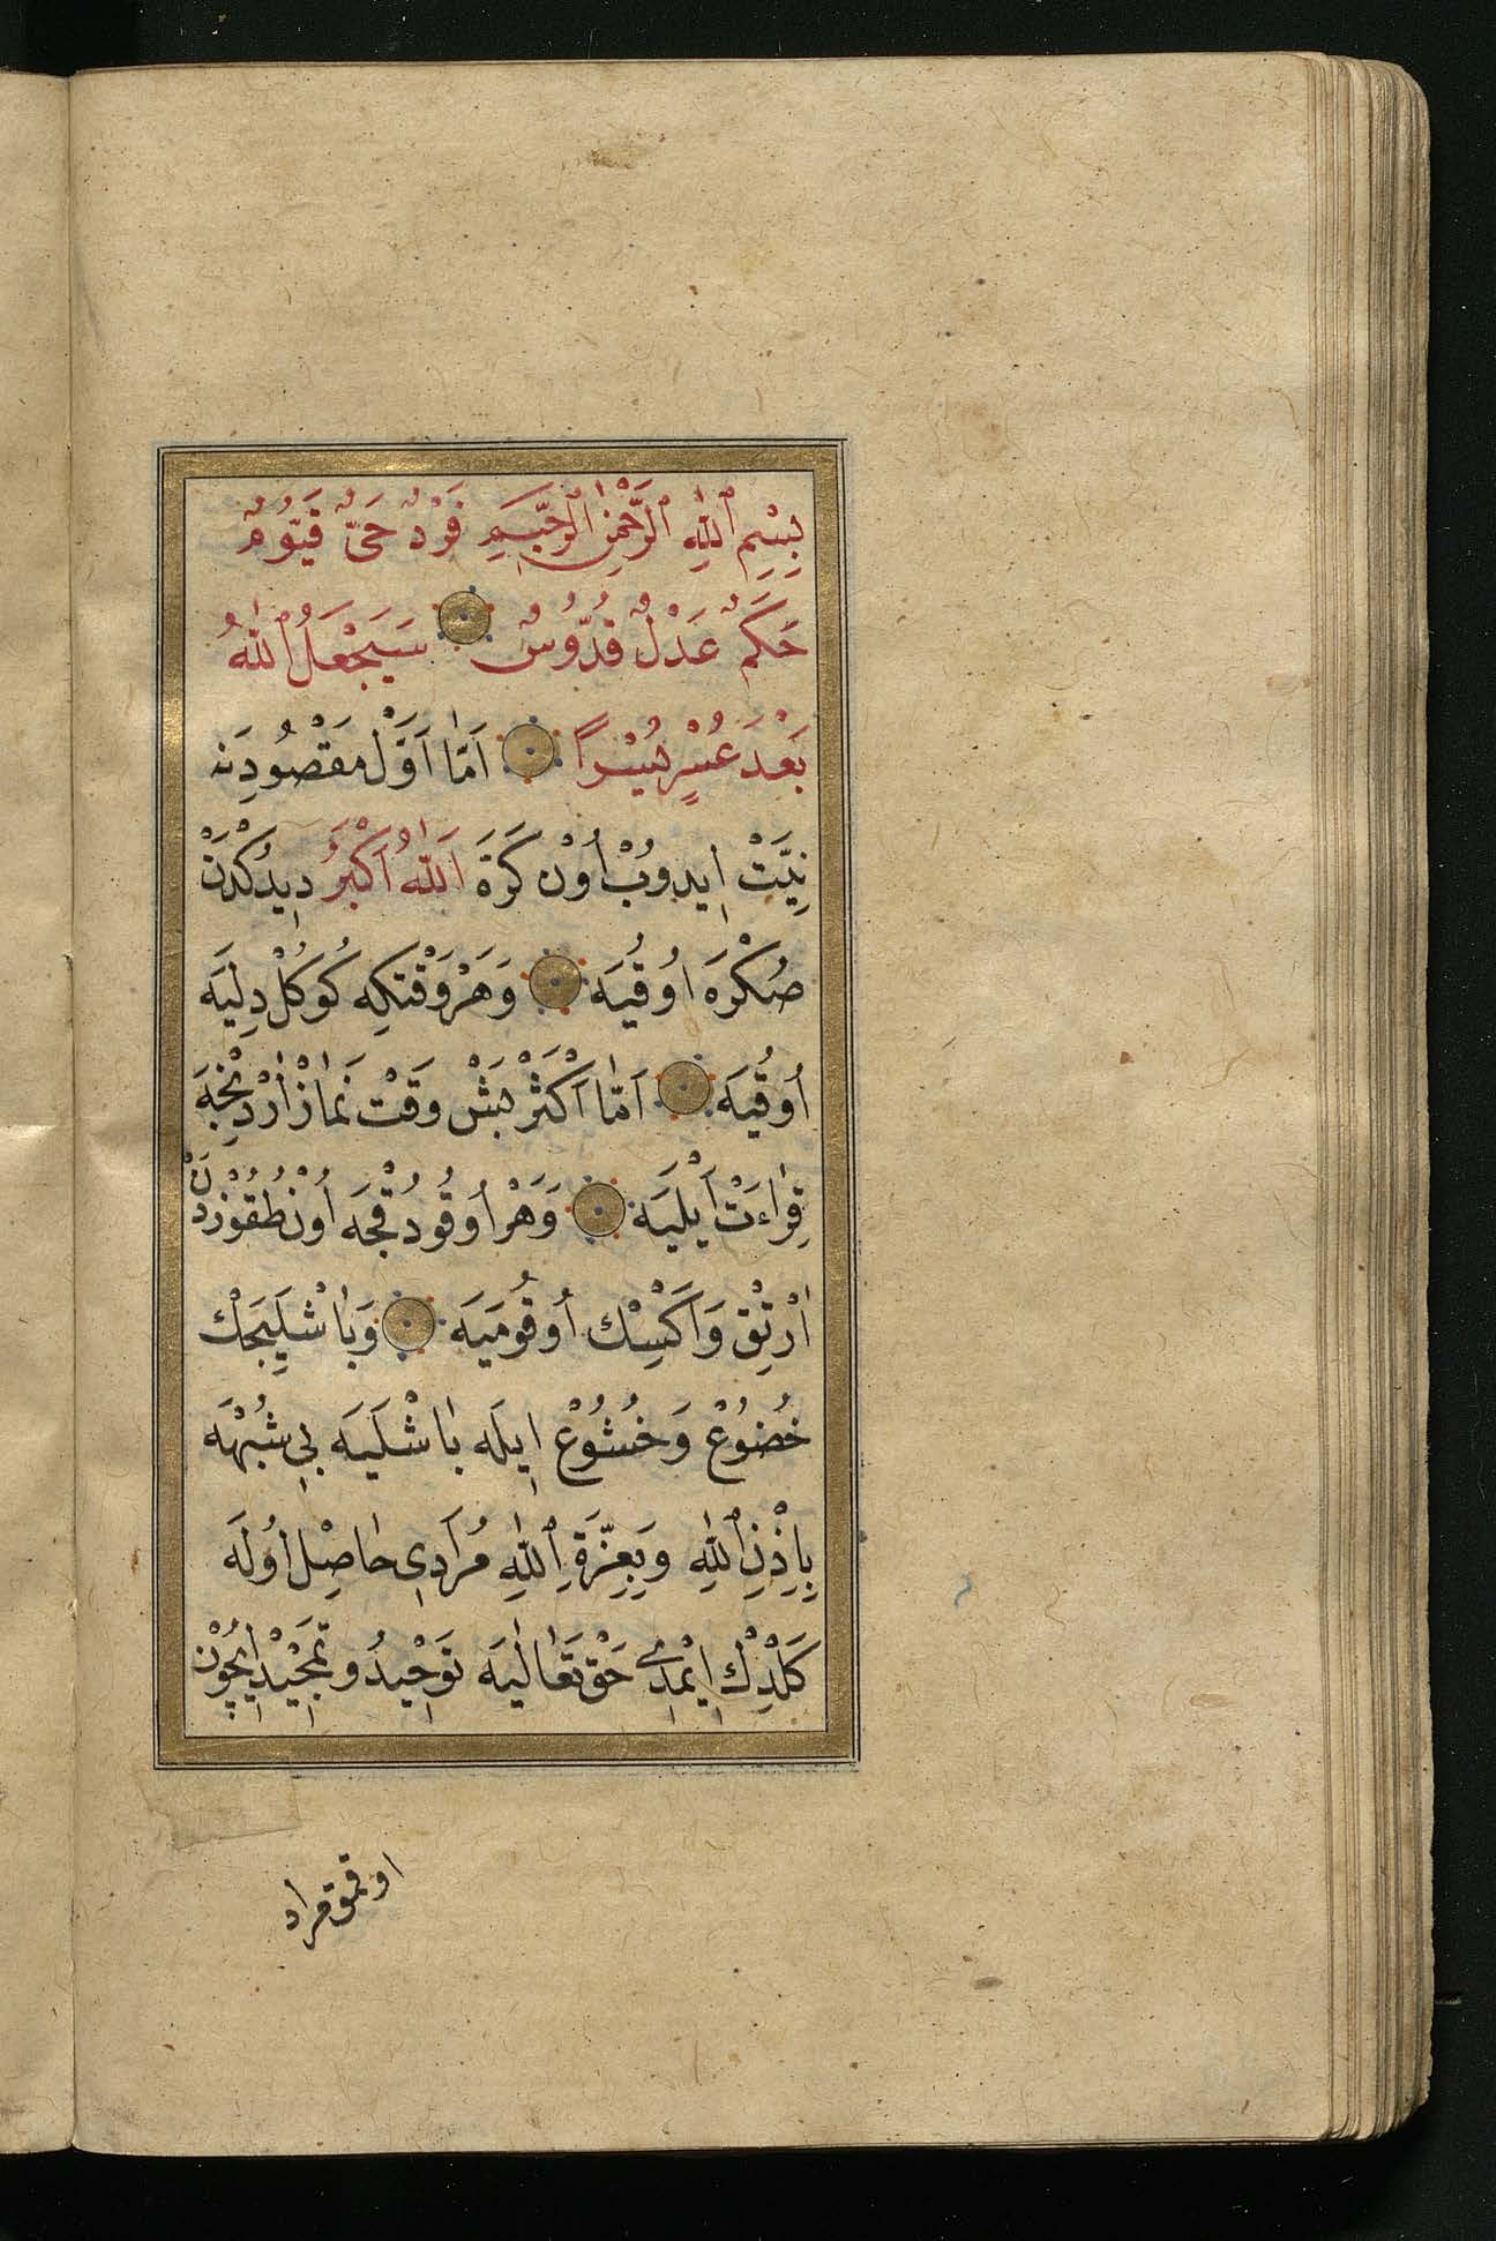 بِسْمِ ٱللّٰهِ ٱلرَّحْمٰنِ ٱلرَّحِيمِ فَرْدٌ حَىٌّ قَيُّومٌ
حَكَمٌ عَدْلٌ قُدُّوسٌ سَيَجْعَلُ ٱللّٰهُ
بَعْدَ عُسْرٍ يُسْراً اَمَّا اَوَّلْ مَقْصُودِنَه
نِيَّتْ اِيدوُبْ اُوْن كَرَّةَ اَللّٰهُ اَكْبَرُ دِيدُكْدَنْ
صُكْرَه اُوقُيَه وَهَرْ وَقْتكِه كُوكُلْ دِلِيَه
اُوقُيَه اَمَّا اَكْثَرْ بَشْ وَقَتْ نَمَازْ اَرْدِنْجَه
قِرٰاءَتْ اَيْلِيَه وَهَرْ اُوقُودُقْجَه اُوْنْ طُقُوزْدَنْ
اَرْتِقْ وَاَكْسِكْ اُوقُومَيَه وَبَاشْلَيِيجَكْ
خُضُوعْ وَخُشُوعْ اِيلَه بَاشْلَيَه بِى شُبْهَه
بِاِذْنِ ٱللّٰهِ وَبِعِزَّةِ ٱللّٰهِ مُرَادِى حَاصِلْ اُولَه
كَلْدِكْ اِيمْدِى حَقْ تَعَالٰيَه تَوْحِيدُ و تَمْجِيْدْ اِيچُوْن
اوقمق مراد